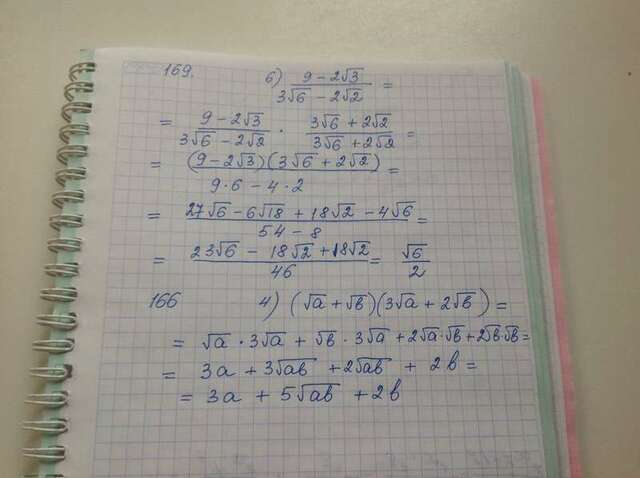 169. б) (9 − 2√3)/(3√6 − 2√2) =
= (9 − 2√3)/(3√6 − 2√2) · (3√6 + 2√2)/(3√6 + 2√2) =
= ((9 − 2√3)(3√6 + 2√2))/(9·6 − 4·2) =
= (27√6 − 6√18 + 18√2 − 4√6)/(54 − 8) =
= (23√6 − 18√2 + 18√2)/46 = √6/2
166 4) (√a + √b)(3√a + 2√b) =
= √a · 3√a + √b · 3√a + 2√a·√b + 2√b·√b =
= 3a + 3√ab + 2√ab + 2b =
= 3a + 5√ab + 2b